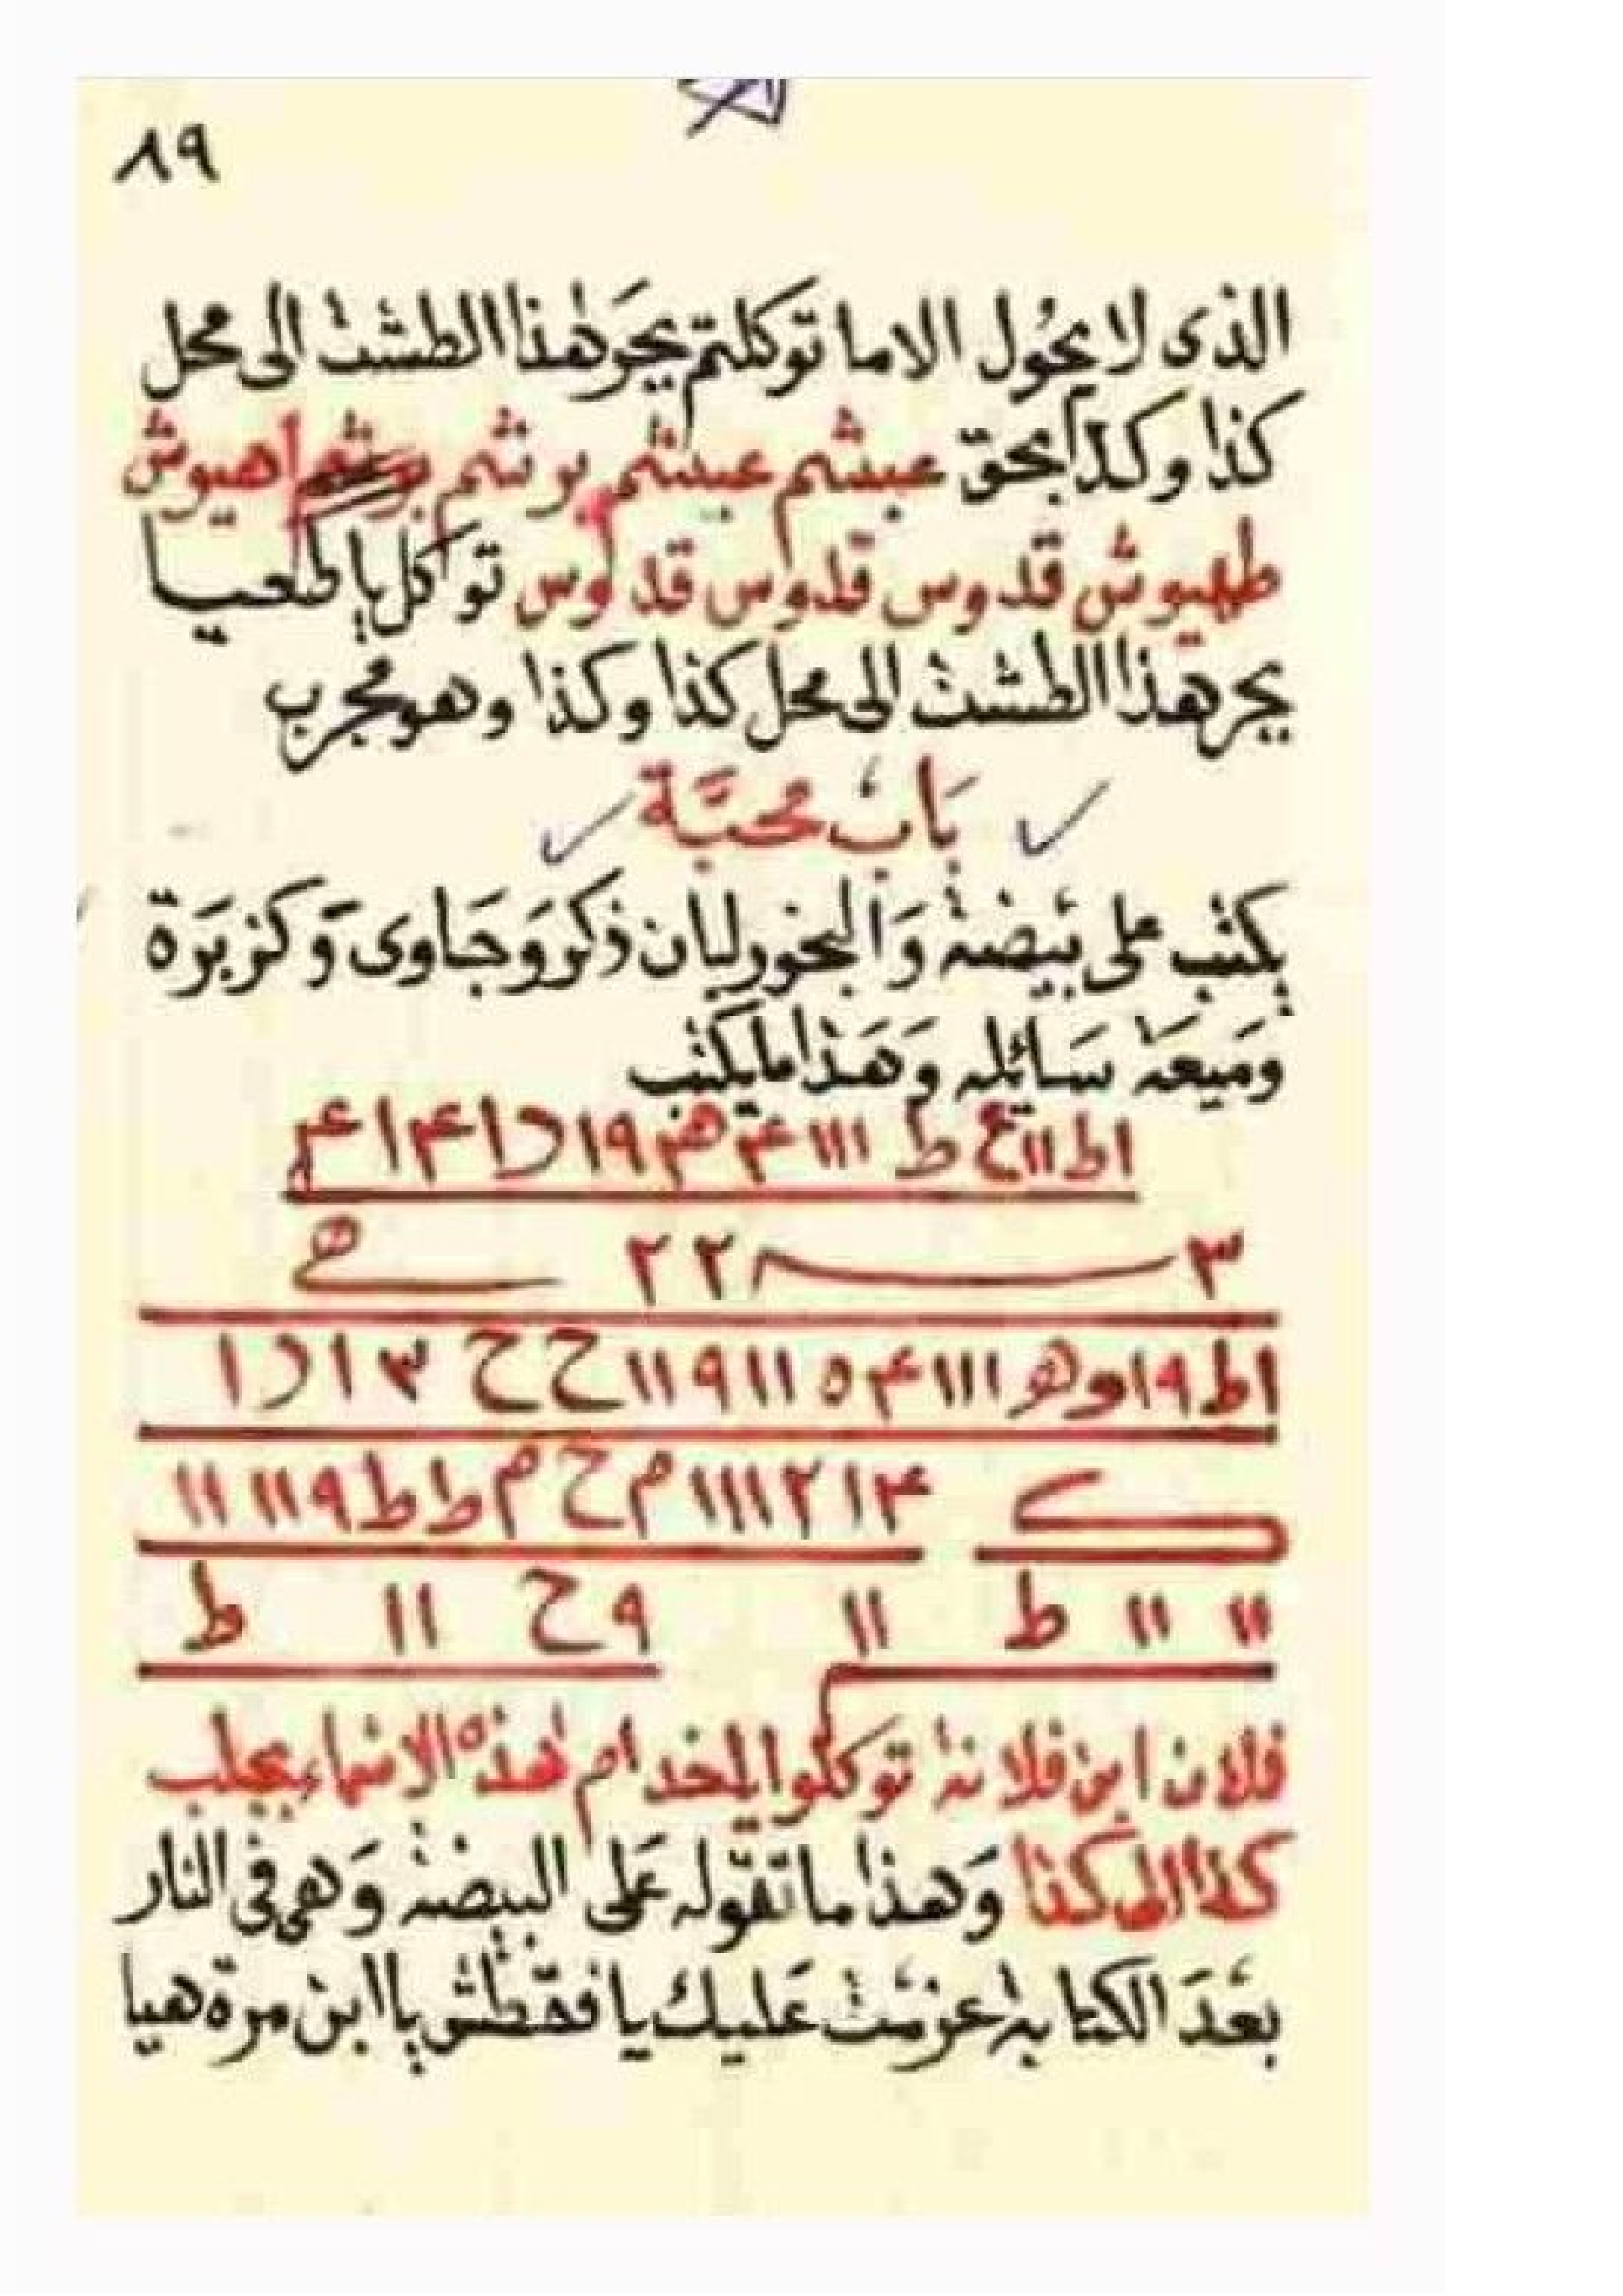 ٨٩
الذى لا يحول الا ما توكلتم يجر هذا الطشت الى محل
كذا وكذا بحق عبشم عبشم برشم برشم اهيوش
طهيوش قدوس قدوس قدوس توكل يا
يجر هذا الطشت الى محل كذا وكذا وهو مجرب
بَابُ مُحَبَّة
يكتب على بَيضة وَالبخور لبان ذكر وَجَاوى وَكزبَرَة
ومَيعَة سَائله وهَذا ما يكتب
اط١١ع ط ١١١ ۴ ١٩
٣ ٢٢
اط١٩اوه١١١۴٥١١٩١١ح ح ٣
ك ۴١٢١١١م ح م ط ط ٩١١ ١١
١١ ١١ ط ١١ ٩ح ١١ ط
فلان ابن فلانة توكلوا ياخدام هذه الاسماء بجلب
كذا الى كذا وَهذا ما تقوله عَلى البيضة وَهى فى النار
بَعدَ الكتابة عزمت عَليك يا فقطش يا ابن مرة هيا